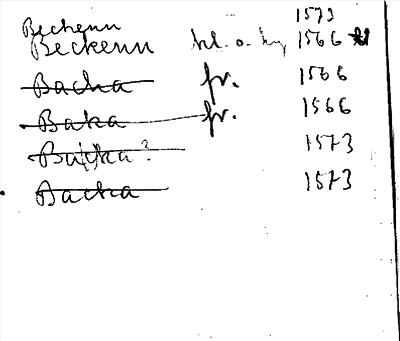 Beckenn 1573
Beckenn kl. o. hy 1566
Bacha fr. 1566
Baka fr. 1566
Bacska? 1573
Backa 1573